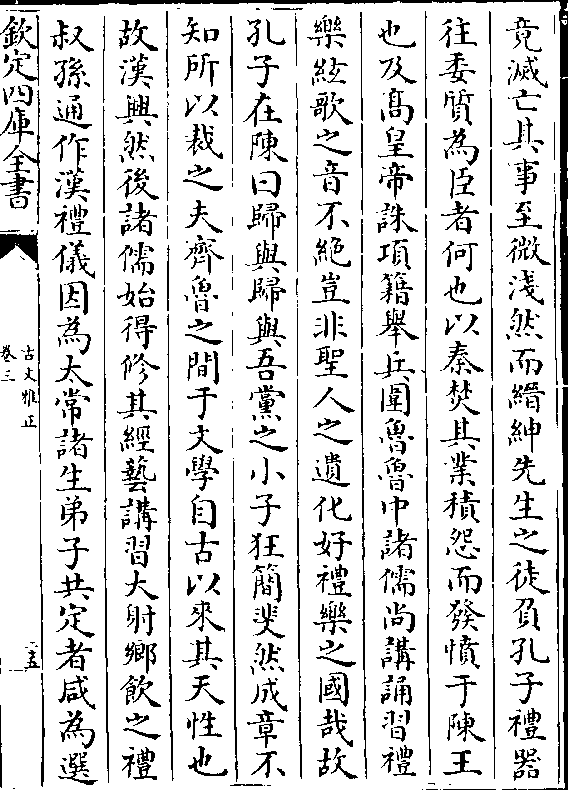 竟滅亡其事至微淺然而縉紳先生之徒負孔子禮器
往委質為臣者何也以秦焚其業積怨而發憤于陳王
也及髙皇帝誅項籍舉兵圍魯魯中諸儒尚講誦習禮
樂絃歌之音不絶豈非聖人之遺化好禮樂之國哉故
孔子在陳曰歸與歸與吾黨之小子狂簡斐然成章不
知所以裁之夫齊魯之間于文學自古以來其天性也
故漢興然後諸儒始得修其經藝講習大射鄉飲之禮
叔孫通作漢禮儀因為太常諸生弟子共定者咸為選
欽定四庫全書
古文雅正
卷三
三五